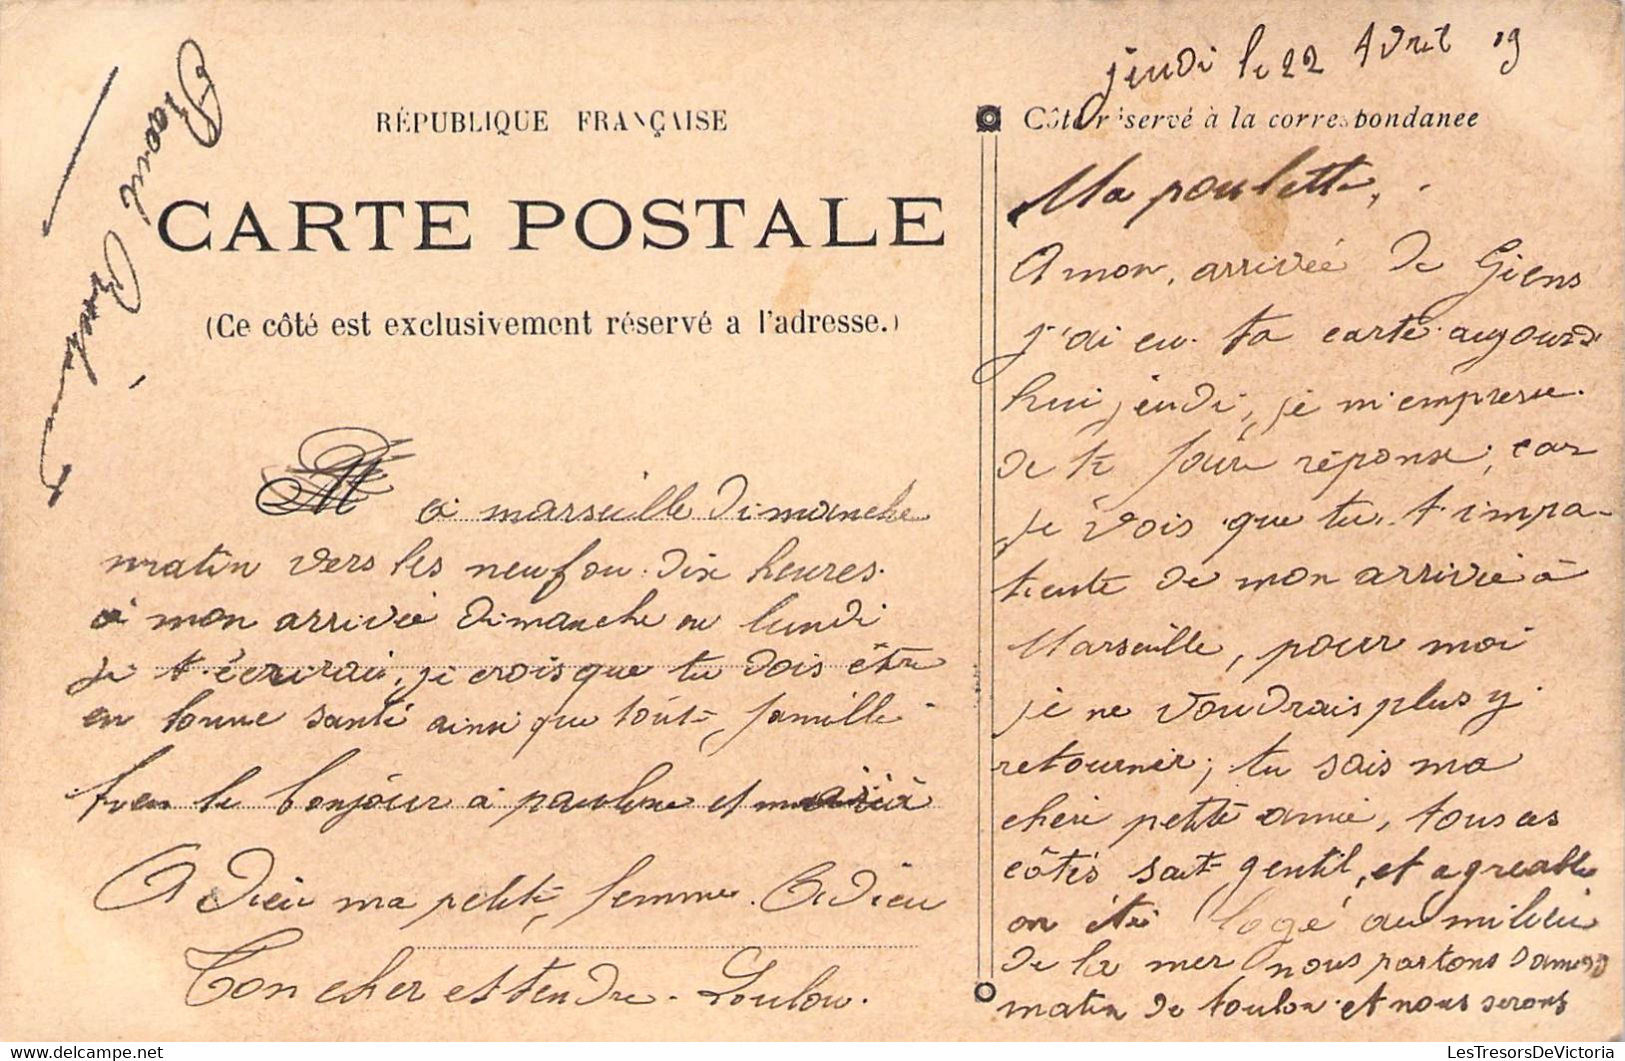 jeudi le 22 Avril 09
RÉPUBLIQUE FRANÇAISE
CARTE POSTALE
(Ce côté est exclusivement réservé a l'adresse.)
Côté réservé à la correspondance
Ma poulette,
A mon arrivée de Giens
j'ai eu ta carte aujourd
hui jeudi, je m'empresse
de te faire réponse, car
je vois que tu t'impa-
tiente de mon arrivée à
Marseille, pour moi
je ne voudrais plus y
retourner, tu sais ma
cheri petite amie, tous as
côtés sait gentil, et agreable
on été logé au milieu
de la mer nous partons samedi
matin de toulon et nous serons
a marseille dimanche
matin vers les neuf ou dix heures
a mon arrivée dimanche ou lundi
je t'écrirai, je crois que tu dois être
en bonne santé ainsi que toute famille
le bonjour a pauline et maria
Adieu ma petite femme. Adieu
Ton cher et tendre Loulou.